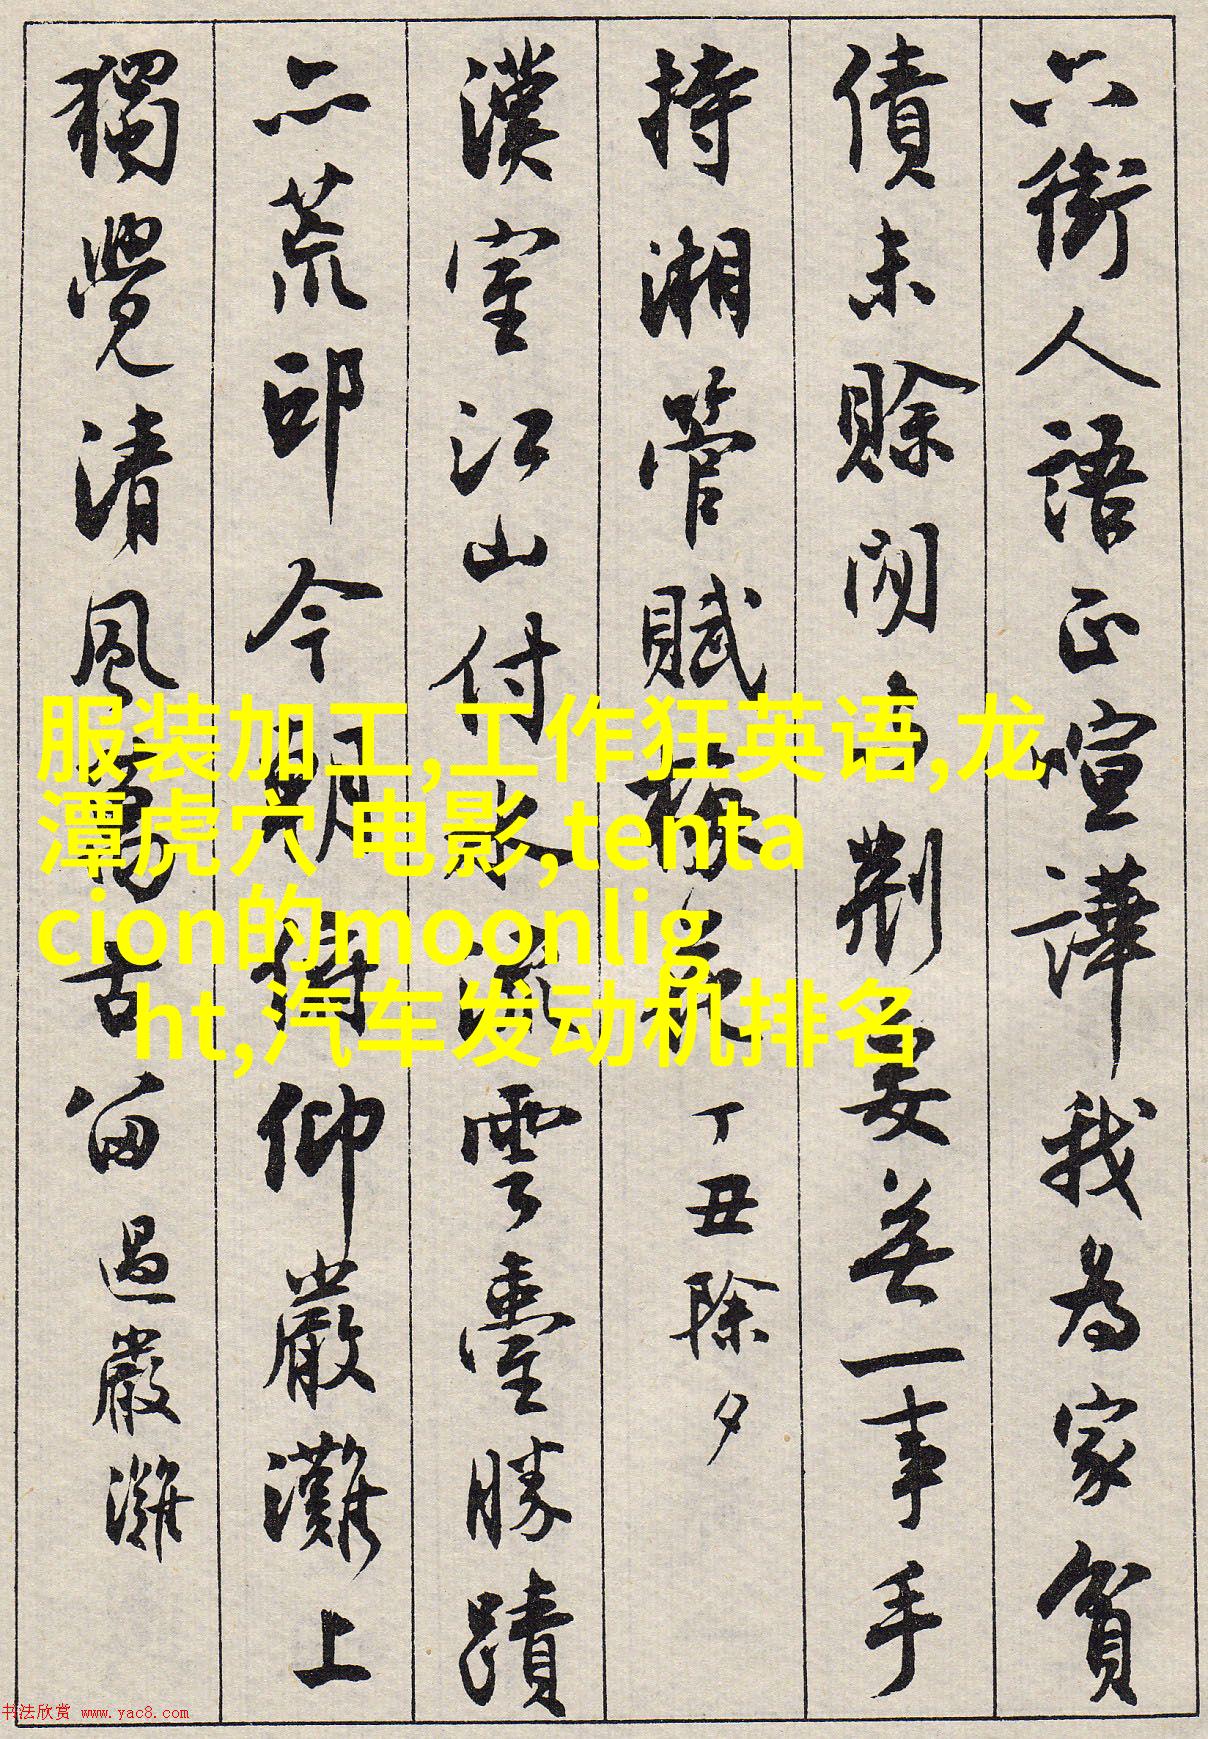 六街人語正喧譁我為家貧
債未賒閒荊妻無一事手
持湘管賦梅花丁丑除夕
漢室江山付水流雲臺勝蹟
亦荒邱今朝得仰嚴灘上
獨覺清風萬古留過嚴灘
服装加工,工作狂英语,龙
潭虎穴 电影,tenta
cion的moonlig
ht,汽车发动机排名
书法欣赏 www.yac8.com